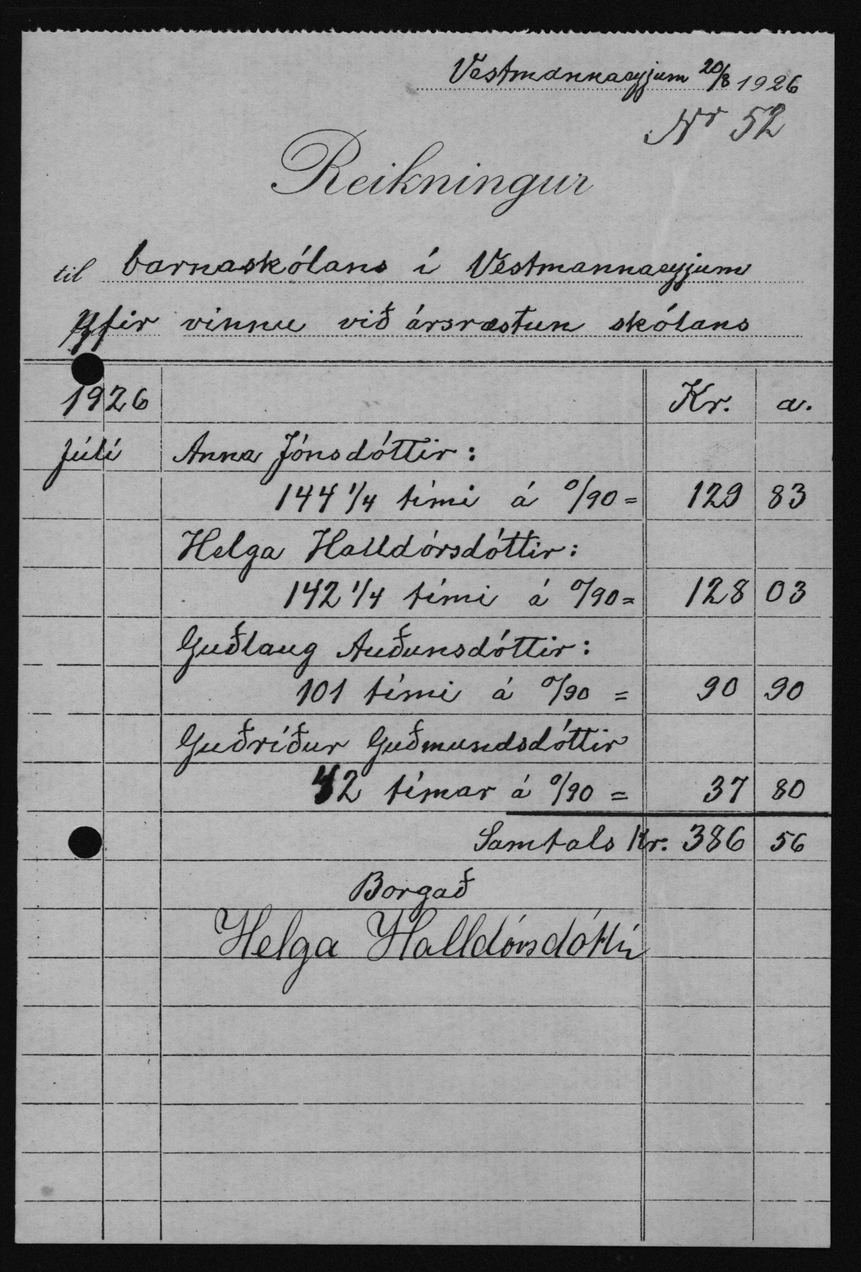 Vestmannaeyjum 20/8 1926
Nr 52
Reikningur
til barnaskólans í Vestmannaeyjum
Yfir vinnu við ársræstun skólans
1926 Kr. a.
Júlí Anna Jónsdóttir:
144 1/4 tími á 0/90 = 129 83
Helga Halldórsdóttir:
142 1/4 tími á 0/90 = 128 03
Guðlaug Auðunsdóttir:
101 tími á 0/90 = 90 90
Guðríður Guðmundsdóttir
42 tímar á 0/90 = 37 80
Samtals Kr. 386 56
Borgað
Helga Halldórsdóttir